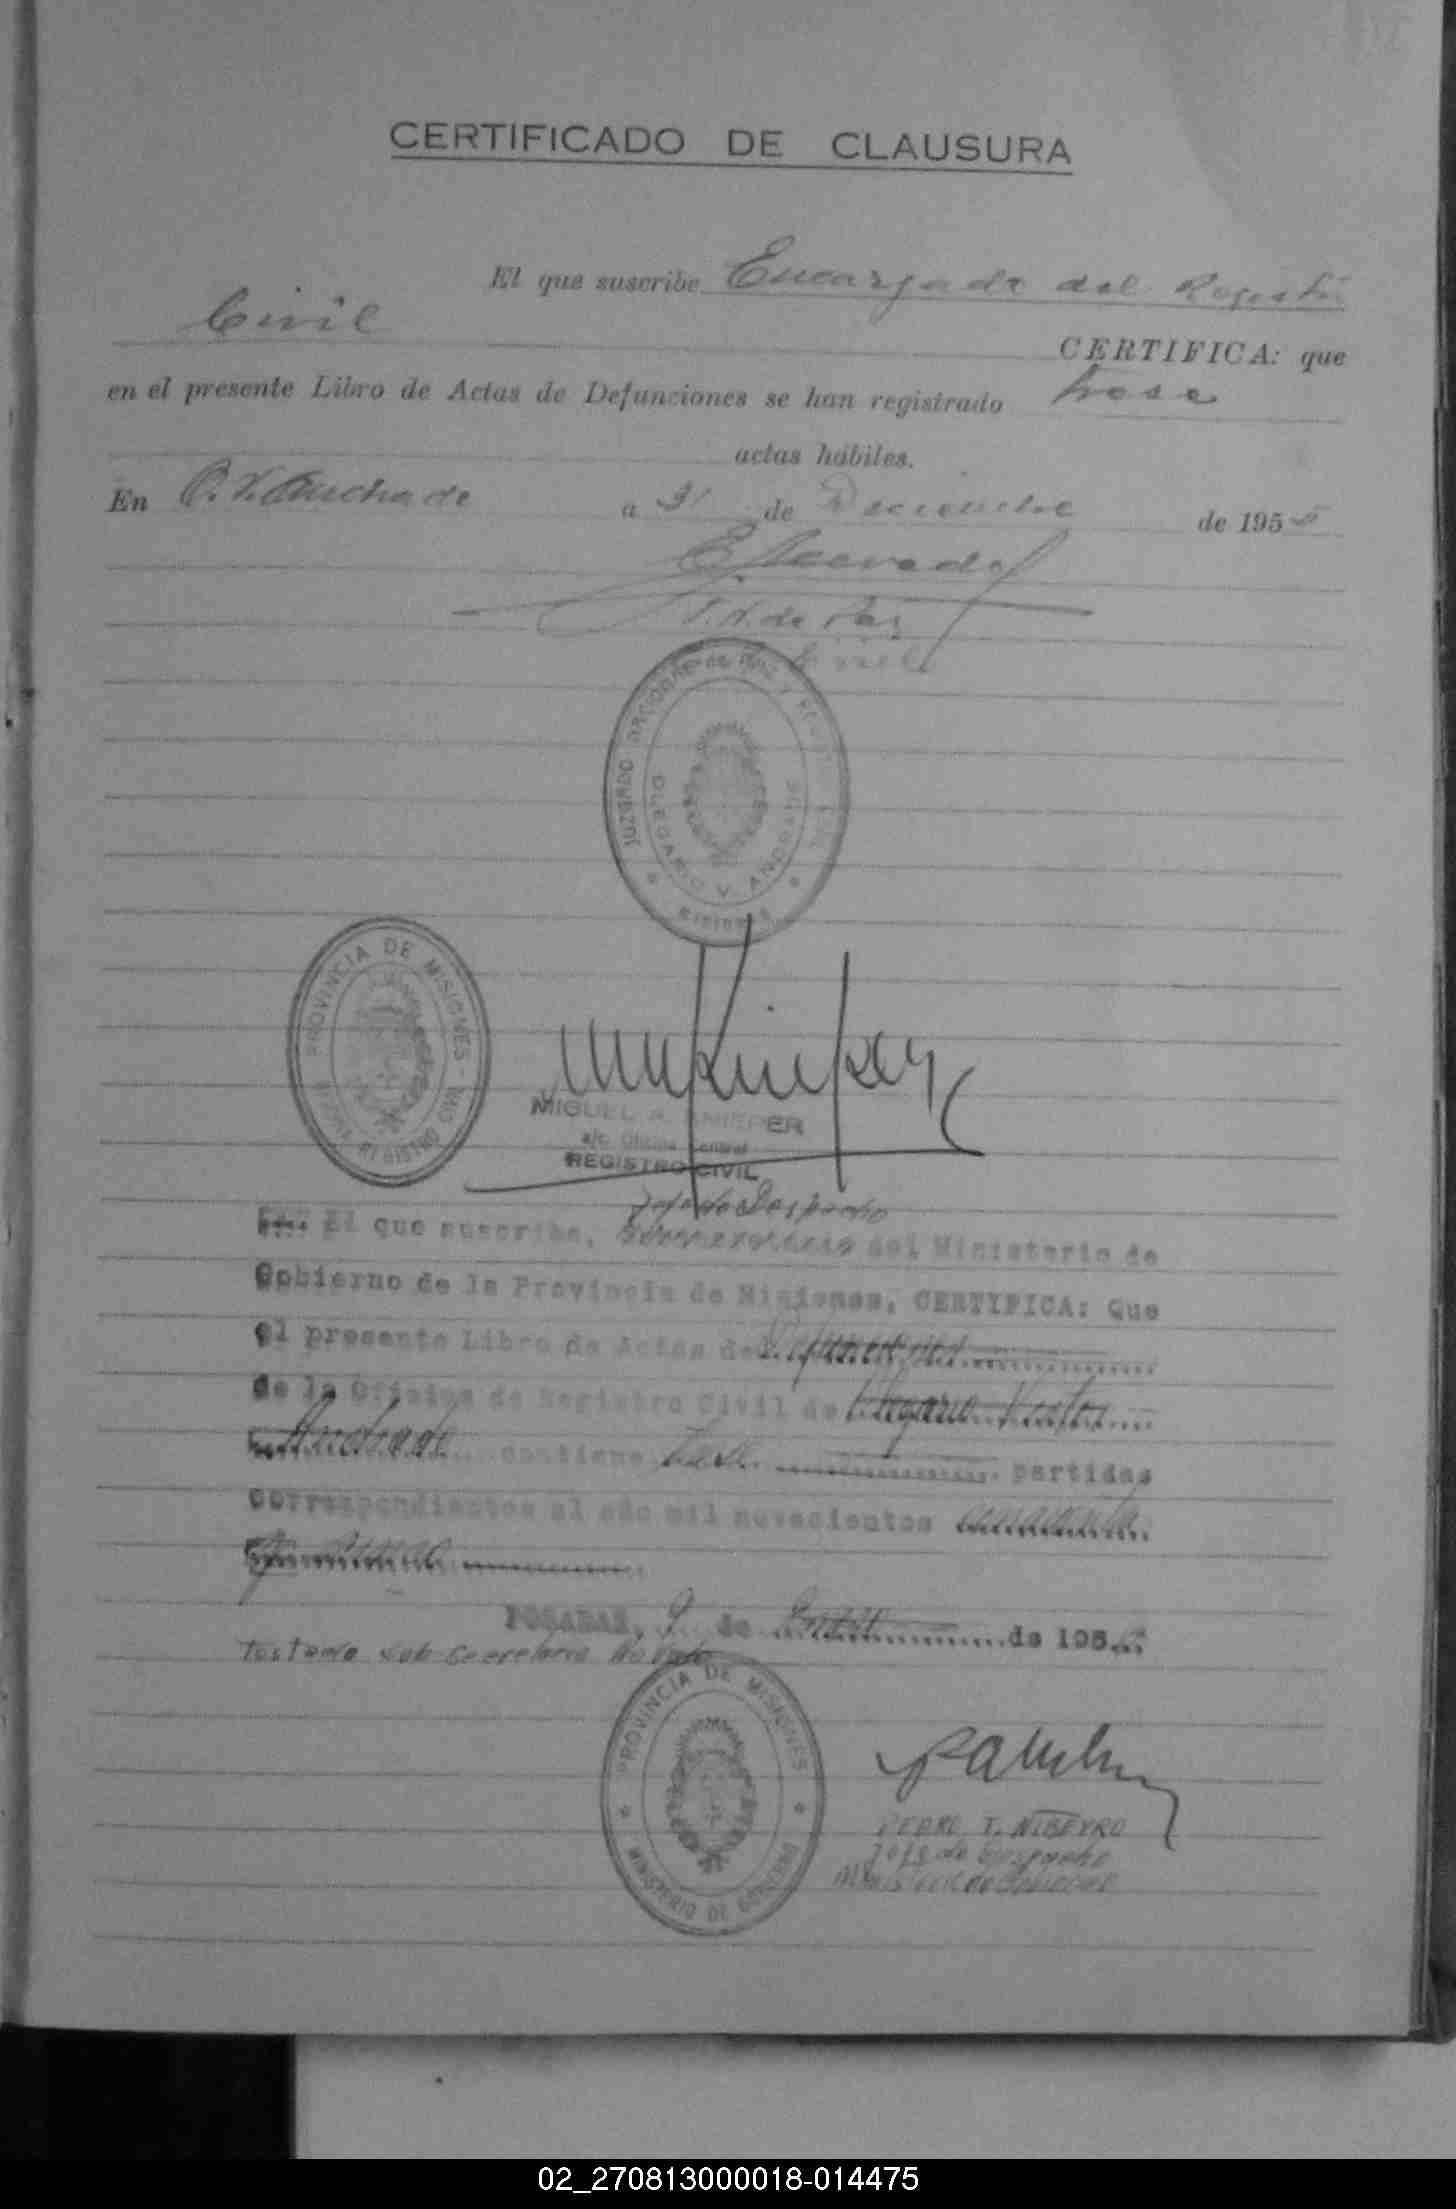 CERTIFICADO DE CLAUSURA
El que suscribe Encargado del Registro
Civil
CERTIFICA: que
en el presente Libro de Actas de Defunciones se han registrado trese
actas hábiles.
En O. V. Andrade a 31 de Deciembre de 195
E Acevedo
J. N. de Paz
Civil
JUZGADO NACIONAL DE PAZ Y REGISTRO CIVIL
OLEGARIO V. ANDRADE
MISIONES
PROVINCIA DE MISIONES - REGISTRO CIVIL
MIGUEL A. KNIEPER
a/c. Oficina Central
REGISTRO CIVIL
Jefe de Despacho
El que suscribe, del Ministerio de
Gobierno de la Provincia de Misiones, CERTIFICA: Que
el presente Libro de Actas de Defunciones
de la Oficina de Registro Civil de Olegario Victor
Andrade contiene trece partidas
correspondientes al año mil novecientos cincuenta
y cinco
POSADAS, 9 de Enero de 195
Testado sub-secretario No Vale
PROVINCIA DE MISIONES
MINISTERIO DE GOBIERNO
PEDRO T. NIBEYRO
Jefe de Despacho
Ministerio de Gobierno
02_270813000018-014475